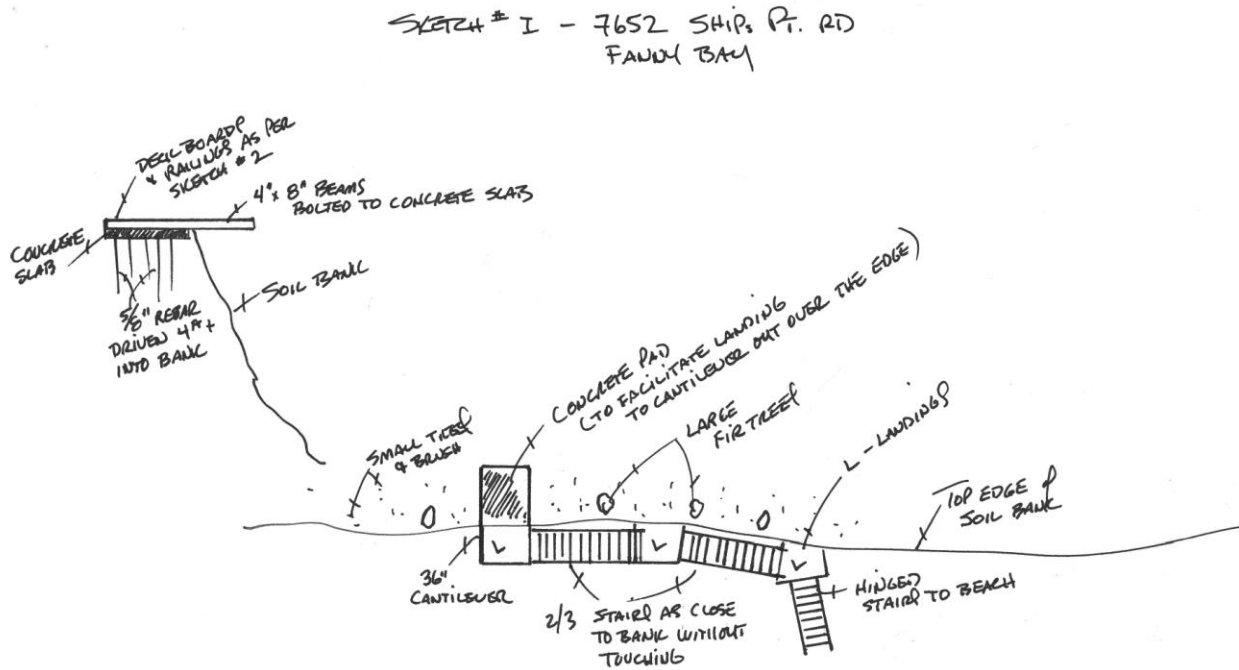 SKETCH # I - 7652 SHIPS PT. RD
FANNY BAY
DECK BOARDS
& RAILINGS AS PER
SKETCH # 2
4" x 8" BEAMS
BOLTED TO CONCRETE SLAB
CONCRETE
SLAB
SOIL BANK
5/8" REBAR
DRIVEN 4FT+
INTO BANK
CONCRETE PAD
(TO FACILITATE LANDING
TO CANTILEVER OUT OVER THE EDGE)
LARGE
FIR TREES
SMALL TREES
& BRUSH
L - LANDINGS
TOP EDGE of
SOIL BANK
L
L
L
36"
CANTILEVER
2/3 STAIRS AS CLOSE
TO BANK WITHOUT
TOUCHING
HINGED
STAIRS TO BEACH